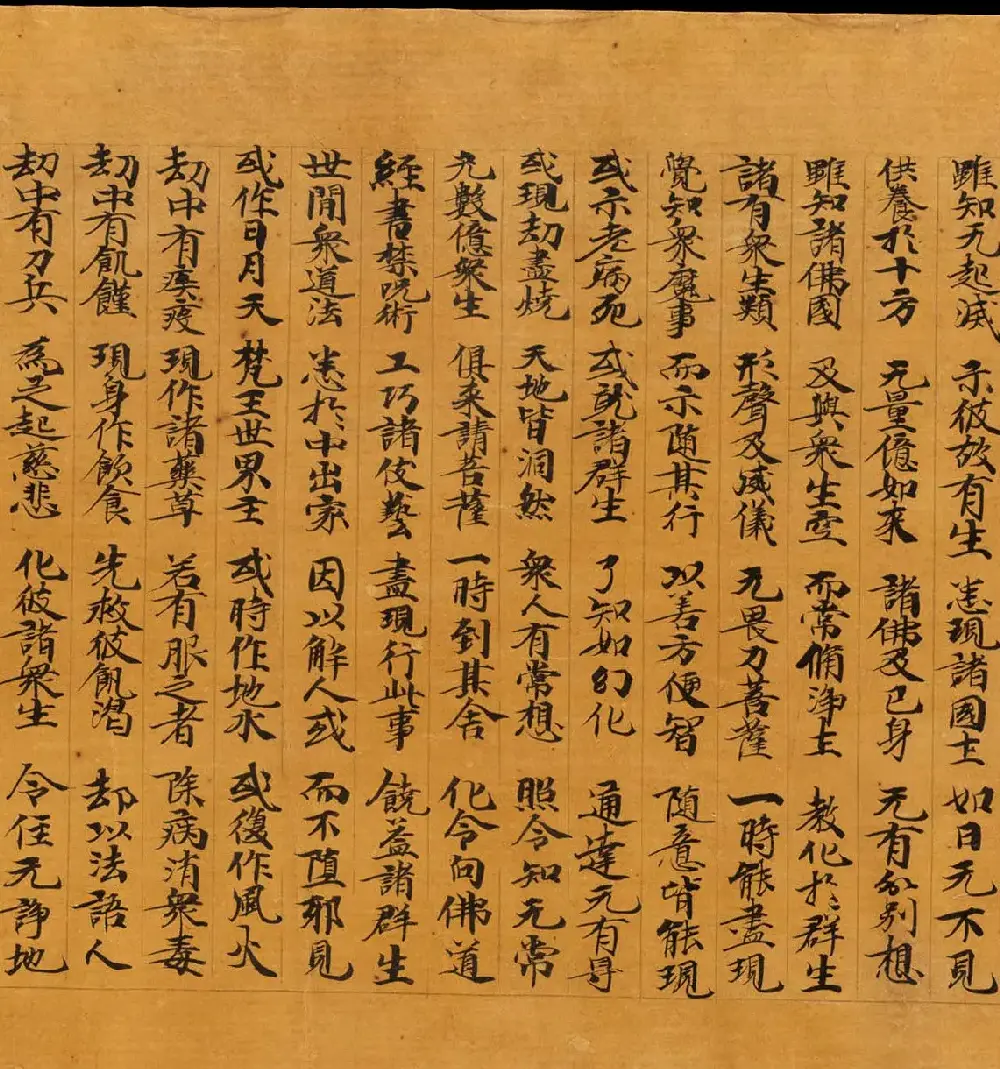 雖知无起滅 示彼故有生 悉現諸國土 如日无不見
供養於十方 无量億如來 諸佛及己身 无有分別想
雖知諸佛國 及與衆生空 而常脩淨土 教化於群生
諸有衆生類 形聲及威儀 无畏力菩薩 一時能盡現
覺知衆魔事 而示随其行 以善方便智 随意皆能現
或示老病死 成就諸群生 了知如幻化 通達无有㝵
或現劫盡燒 天地皆洞然 衆人有常想 照令知无常
无數億衆生 俱来請菩薩 一時到其舍 化令向佛道
經書禁呪術 工巧諸伎藝 盡現行此事 饒益諸群生
世間衆道法 悉於中出家 因以解人或 而不堕邪見
或作日月天 梵王世界主 或時作地水 或復作風火
劫中有疾疫 現作諸藥草 若有服之者 除病消衆毒
劫中有飢饉 現身作飲食 先救彼飢渴 却以法語人
劫中有刀兵 為之起慈悲 化彼諸衆生 令住无諍地